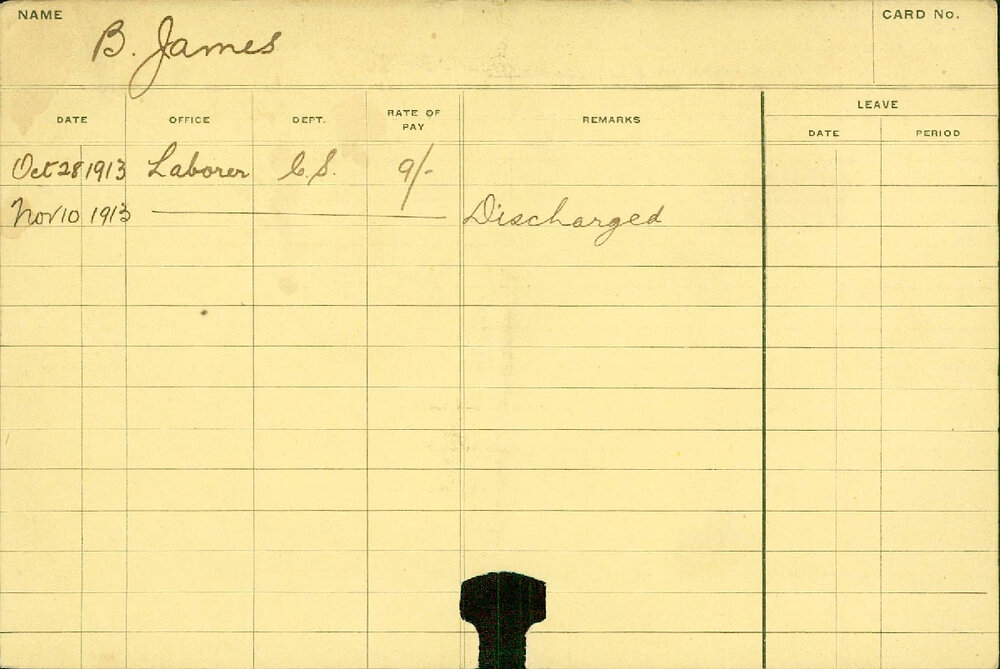 NAME
B. James
CARD No.
DATE OFFICE DEPT. RATE OF PAY REMARKS LEAVE
DATE PERIOD
Oct 28 1913 Laborer C.S. 9/-
Nov 10 1913 Discharged